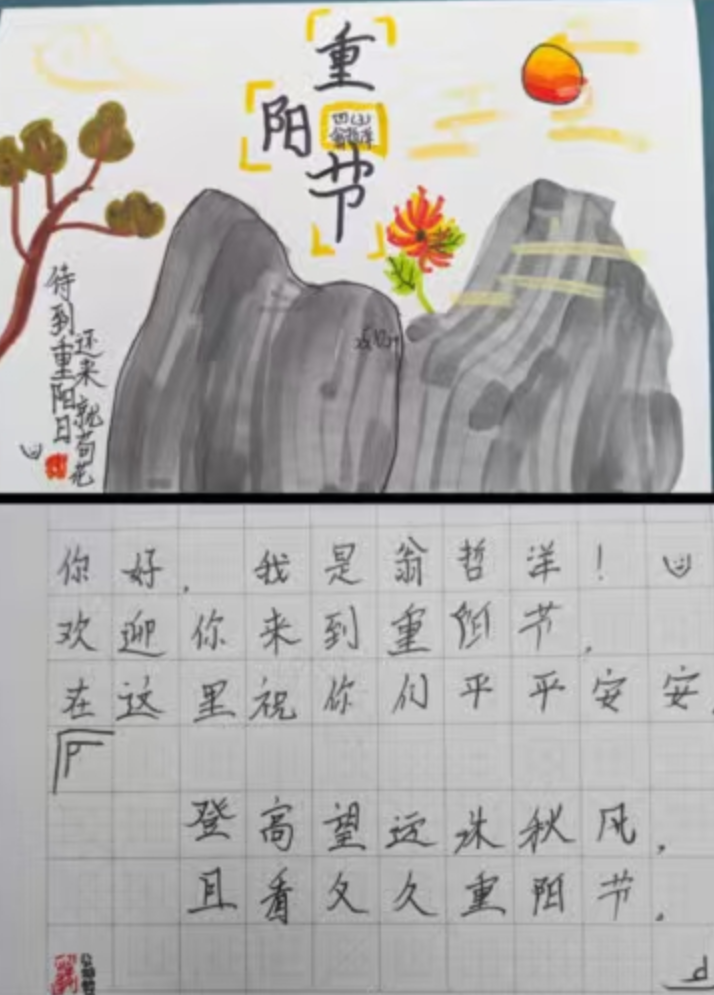 重
阳
四(3)
翁哲洋
节
待到重阳日
还来就菊花
你好，我是翁哲洋！
欢迎你来到重阳节，
在这里祝你们平平安安，
登高望远沐秋风，
且看久久重阳节。